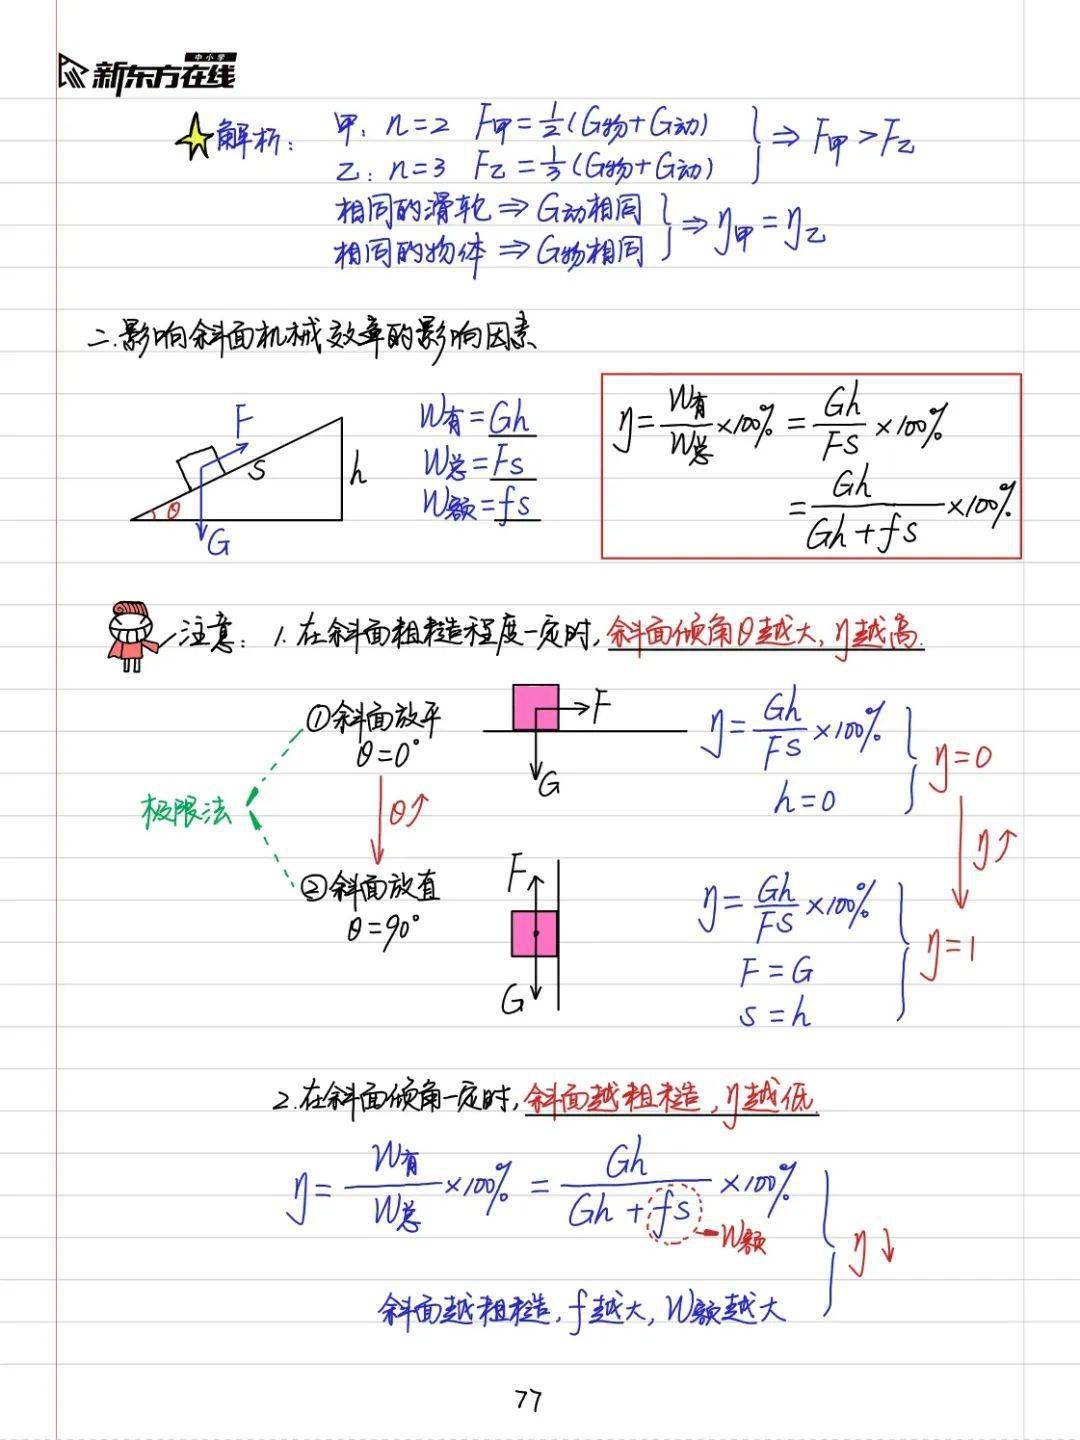 中小学
新东方在线
解析: 甲: n=2 F甲=1/2(G物+G动)
乙: n=3 F乙=1/3(G物+G动)
⇒ F甲>F乙
相同的滑轮 ⇒ G动相同
相同的物体 ⇒ G物相同
⇒ η甲=η乙
二.影响斜面机械效率的影响因素
F
s
h
θ
G
W有=Gh
W总=Fs
W额=fs
η=W有/W总×100%=Gh/FS×100%
=Gh/(Gh+fs)×100%
注意: 1.在斜面粗糙程度一定时,斜面倾角θ越大,η越高.
极限法
①斜面放平
θ=0°
F
G
η=Gh/FS×100%
h=0
η=0
θ↑
η↑
②斜面放直
θ=90°
F
G
η=Gh/FS×100%
F=G
s=h
η=1
2.在斜面倾角一定时,斜面越粗糙,η越低.
η=W有/W总×100%=Gh/(Gh+fs)×100%
W额
η↓
斜面越粗糙,f越大,W额越大
77